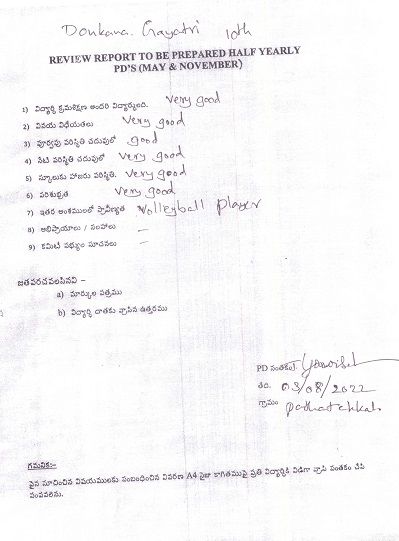 Donkana. Gayatri 10th
REVIEW REPORT TO BE PREPARED HALF YEARLY
PD'S (MAY & NOVEMBER)
1) విద్యార్థి క్రమశిక్షణ అందరి విద్యార్థులది. very good
2) వినయ విధేయతలు very good
3) పూర్వపు పరిస్థితి చదువులో good
4) నేటి పరిస్థితి చదువులో very good
5) స్కూలుకు హాజరు పరిస్థితి. very good
6) పరిశుభ్రత very good
7) ఇతర అంశములలో ప్రావీణ్యత volleyball player
8) అభిప్రాయాలు / సలహాలు —
9) కమిటి సభ్యుల సూచనలు —
జతపరచవలసినవి :-
a) మార్కుల పత్రము
b) విద్యార్థి దాతకు వ్రాసిన ఉత్తరము
PD సంతకం
తేది. 03/08/2022
గ్రామం
గమనిక:-
పైన సూచించిన విషయములకు సంబంధించిన వివరణ A4 సైజు కాగితముపై ప్రతి విద్యార్థికి విడిగా వ్రాసి సంతకం చేసి
పంపవలెను.